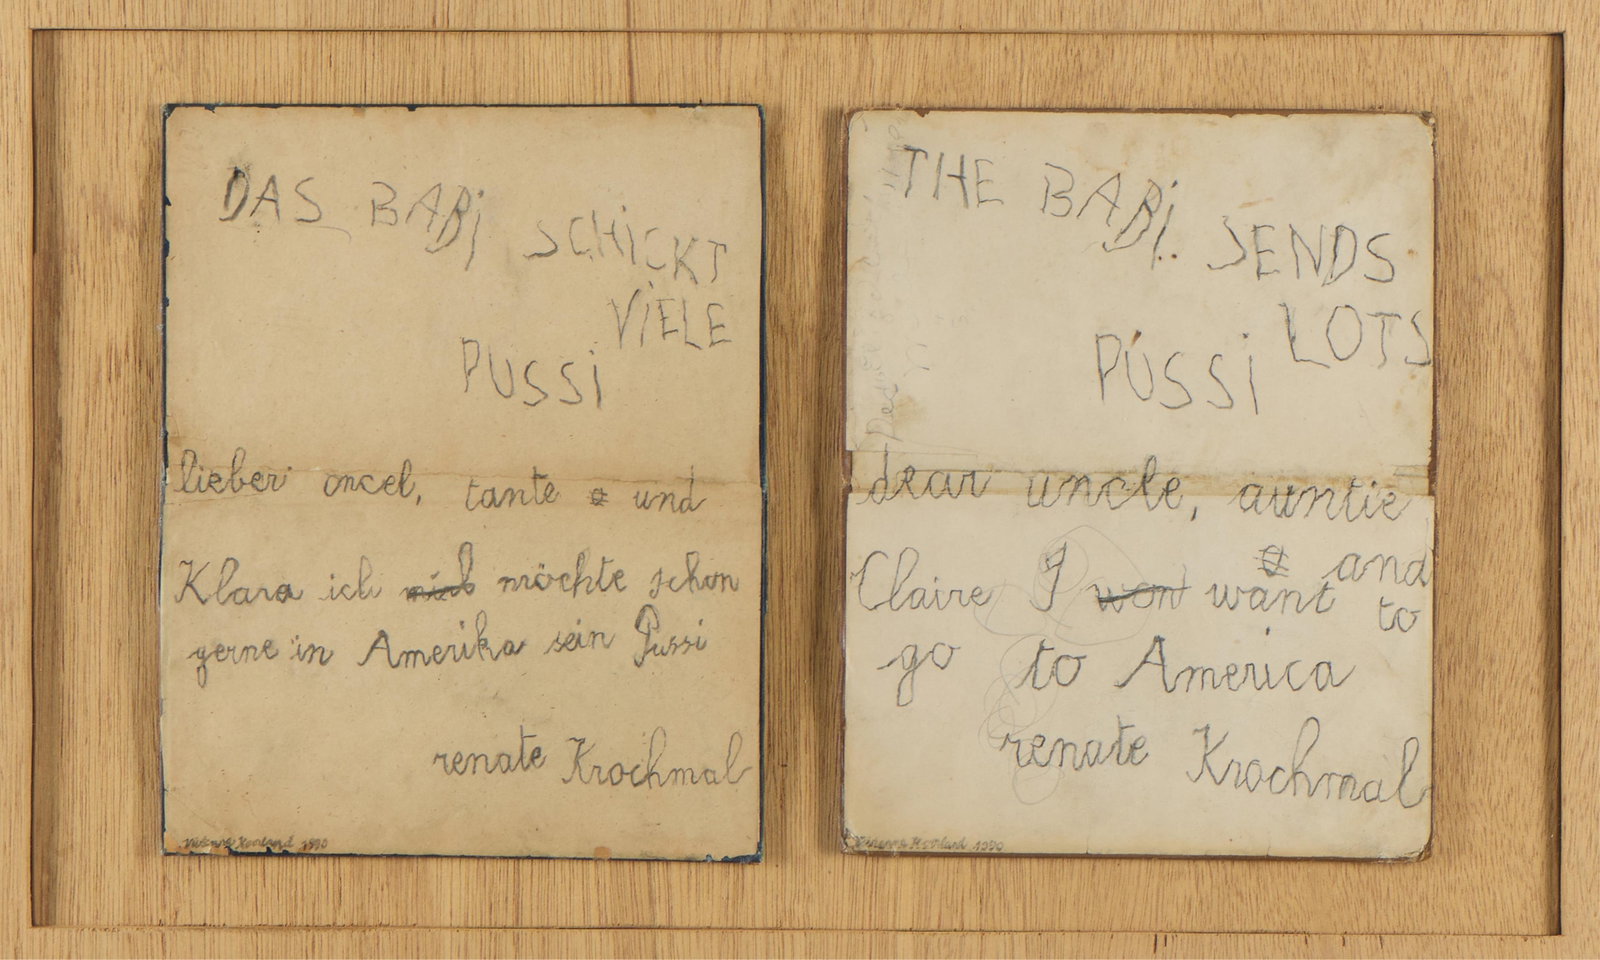 DAS BABi SCHiCKT
ViELE
PUSSi
lieber oncel, tante und
Klara ich möchte schon
gerne in Amerika sein Pussi
renate Krochmal
1990
THE BABi SENDS
LOTS
PUSSi
dear uncle, auntie
and
Claire I won want to
go to America
renate Krochmal
1990